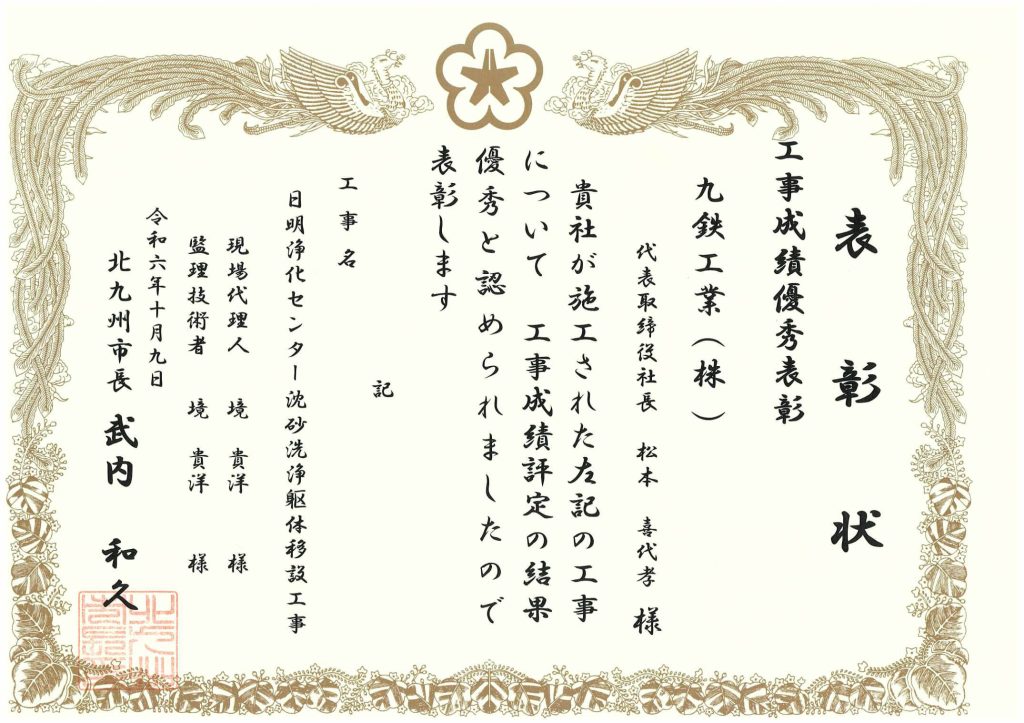 表彰状
工事成績優秀表彰
九鉄工業(株)
代表取締役社長 松本 喜代孝 様
貴社が施工された左記の工事
について 工事成績評定の結果
優秀と認められましたので
表彰します
記
工事名
日明浄化センター沈砂洗浄躯体移設工事
現場代理人 境 貴洋 様
監理技術者 境 貴洋 様
令和六年十月九日
北九州市長 武内 和久